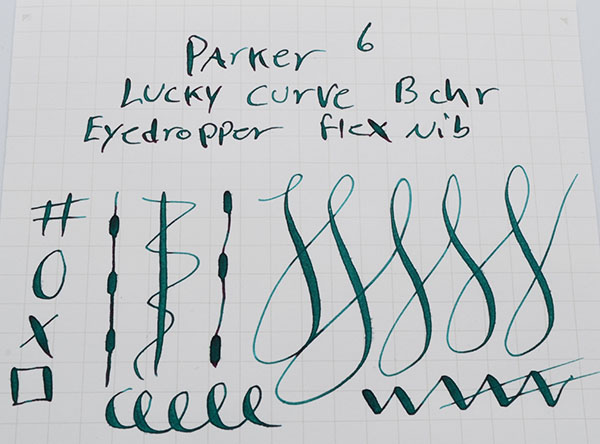 Parker 6
Lucky Curve Bchr
Eyedropper flex Nib